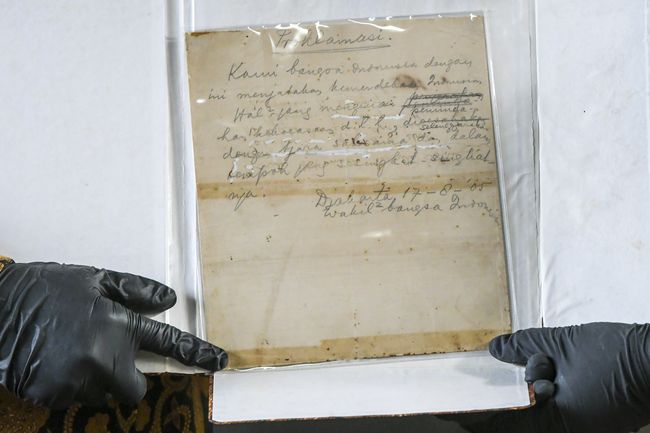 Proklamasi.
Kami bangsa Indonesia dengan
ini menjatakan kemerdekaan Indonesia.
Hal² jang mengenai
peminda-
han kekoeasaan d.l.l., diselenggarakan
dengan tjara saksama dan dalam
tempoh jang sesingkat-singkat
nja.
Djakarta 17-8-'05
Wakil² bangsa Indonesia